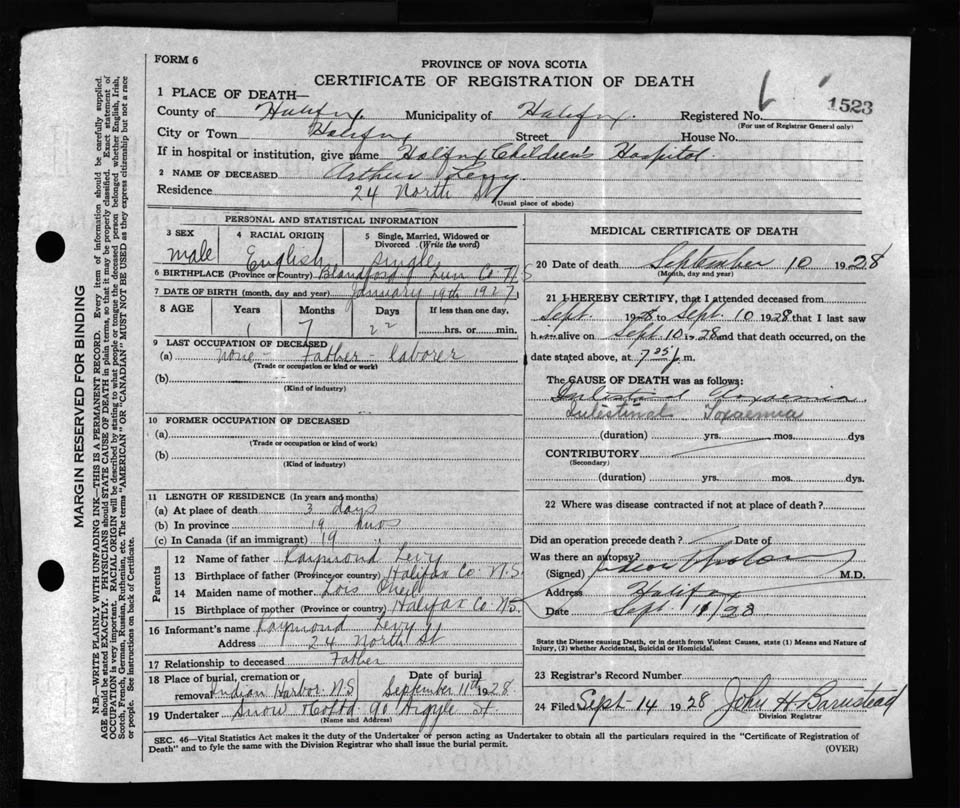 FORM 6
PROVINCE OF NOVA SCOTIA
CERTIFICATE OF REGISTRATION OF DEATH
1523
1 PLACE OF DEATH—
County of Halifax Municipality of Halifax. Registered No.
(For use of Registrar General only)
City or Town Halifax Street House No.
If in hospital or institution, give name Halifax Children's Hospital.
2 NAME OF DECEASED Arthur Levy
Residence 24 North St
(Usual place of abode)
PERSONAL AND STATISTICAL INFORMATION
3 SEX
male
4 RACIAL ORIGIN
English
5 Single, Married, Widowed or Divorced (Write the word)
single
6 BIRTHPLACE (Province or Country) Blandford Lun Co N S
7 DATE OF BIRTH (month, day and year) January 19th 1927
8 AGE Years Months Days If less than one day,
1 7 22 hrs. or min.
9 LAST OCCUPATION OF DECEASED
(a) none - Father - laborer
(Trade or occupation or kind or work)
(b)
(Kind of industry)
10 FORMER OCCUPATION OF DECEASED
(a)
(Trade or occupation or kind of work)
(b)
(Kind of industry)
11 LENGTH OF RESIDENCE (In years and months)
(a) At place of death 3 days
(b) In province 19 mos
(c) In Canada (if an immigrant) 19 "
Parents
12 Name of father Raymond Levy
13 Birthplace of father (Province or country) Halifax Co. N.S.
14 Maiden name of mother Lois
15 Birthplace of mother (Province or country) Halifax Co. N.S.
16 Informant's name Raymond Levy
Address 24 North St
17 Relationship to deceased Father
18 Place of burial, cremation or removal Indian Harbor N.S Date of burial September 11th 1928
19 Undertaker Snow & Co Ltd 90 Argyle St.
(Name and Address)
MEDICAL CERTIFICATE OF DEATH
20 Date of death September 10 1928
(Month, day and year)
21 I HEREBY CERTIFY, that I attended deceased from
Sept. 1928 to Sept. 10 1928 that I last saw
h alive on Sept 10 1928 and that death occurred, on the
date stated above, at 7 25 m.
The CAUSE OF DEATH was as follows:
Intestinal Toxaemia
Intestinal Toxaemia
(duration) yrs. mos. dys
CONTRIBUTORY
(Secondary)
(duration) yrs. mos. dys.
22 Where was disease contracted if not at place of death?
Did an operation precede death? Date of
Was there an autopsy?
(Signed) M.D.
Address Halifax
Date Sept. 11/28
State the Disease causing Death, or in death from Violent Causes, state (1) Means and Nature of
Injury, (2) whether Accidental, Suicidal or Homicidal.
23 Registrar's Record Number
24 Filed Sept 14 1928 John H Barnstead
Division Registrar
SEC. 46—Vital Statistics Act makes it duty of the Undertaker or person acting as Undertaker to obtain all the particulars required in the "Certificate of Registration of
Death" and to fyle the same with the Division Registrar who shall issue the burial permit.
(OVER)
MARGIN RESERVED FOR BINDING
N.B.—WRITE PLAINLY WITH UNFADING INK—THIS IS A PERMANENT RECORD. Every item of information should be carefully supplied.
AGE should be stated EXACTLY. PHYSICIANS should STATE CAUSE OF DEATH in plain terms, so that it may be properly classified. Exact statement of
OCCUPATION is very important. RACIAL ORIGIN will be described by stating to what people or tongue the deceased person belonged, whether English, Irish,
Scotch, French, German, Russian, Ruthenian, etc. The terms "AMERICAN" OR "CANADIAN" MUST NOT BE USED as they express citizenship but not a race
or people. See instructions on back of Certificate.